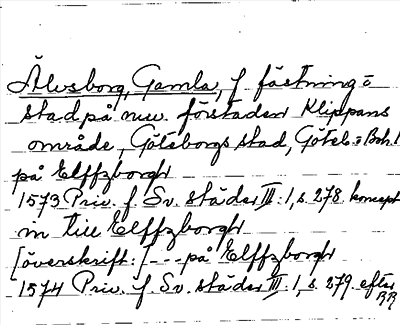 Älvsborg, Gamla, f fästning o
stad på nuv. förstaden Klippans
område, Göteborgs stad, Göteb. o Boh. l
på Elffzborgh
1573 Priv. f. Sv. städer III: 1, s. 278 koncept
in till Elffzborgh
[överskrift:]--- på Elffzborgh
1574 Priv. f. Sv. städer III: 1, s. 279 efter
RR